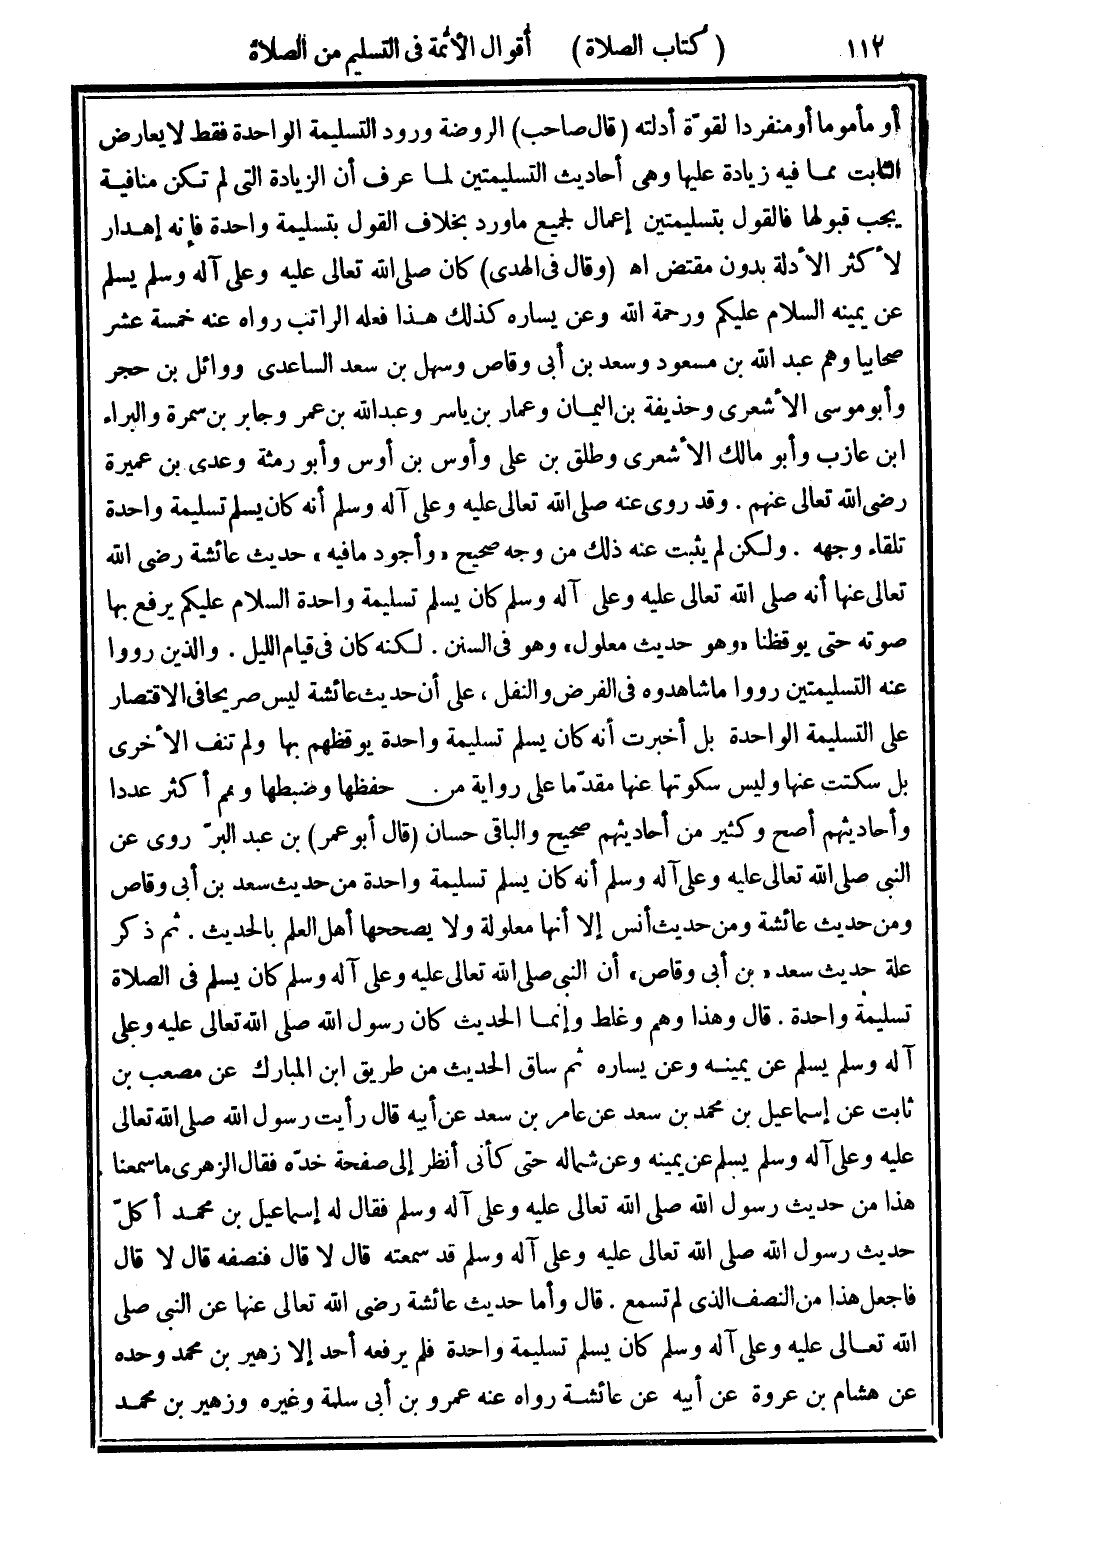 ١١٢ (كتاب الصلاة) أقوال الأئمة فى التسليم من الصلاة
أو مأموما أومنفردا لقوّة أدلته (قال صاحب) الروضة ورود التسليمة الواحدة فقط لا يعارض
الثابت مما فيه زيادة عليها وهى أحاديث التسليمتين لما عرف أن الزيادة التى لم تكن منافية
يجب قبولها فالقول بتسليمتين إعمال لجميع ماورد بخلاف القول بتسليمة واحدة فإنه إهدار
لأكثر الأدلة بدون مقتض اه (وقال فى الهدى) كان صلى الله تعالى عليه وعلى آله وسلم يسلم
عن يمينه السلام عليكم ورحمة الله وعن يساره كذلك هذا فعله الراتب رواه عنه خمسة عشر
صحابيا وهم عبد الله بن مسعود وسعد بن أبى وقاص وسهل بن سعد الساعدى ووائل بن حجر
وأبوموسى الأشعرى وحذيفة بن اليمان وعمار بن ياسر وعبدالله بن عمر وجابر بن سمرة والبراء
ابن عازب وأبو مالك الأشعرى وطلق بن على وأوس بن أوس وأبو رمثة وعدى بن عميرة
رضى الله تعالى عنهم . وقد روى عنه صلى الله تعالى عليه وعلى آله وسلم أنه كان يسلم تسليمة واحدة
تلقاء وجهه . ولكن لم يثبت عنه ذلك من وجه صحيح «وأجود مافيه» حديث عائشة رضى الله
تعالى عنها أنه صلى الله تعالى عليه وعلى آله وسلم كان يسلم تسليمة واحدة السلام عليكم يرفع بها
صوته حتى يوقظنا «وهو حديث معلول» وهو فى السنن . لكنه كان فى قيام الليل . والذين رووا
عنه التسليمتين رووا ماشاهدوه فى الفرض والنفل ، على أن حديث عائشة ليس صريحا فى الاقتصار
على التسليمة الواحدة بل أخبرت أنه كان يسلم تسليمة واحدة يوقظهم بها ولم تنف الأخرى
بل سكتت عنها وليس سكوتها عنها مقدّما على رواية من حفظها وضبطها وهم أكثر عددا
وأحاديثهم أصح وكثير من أحاديثهم صحيح والباقى حسان (قال أبو عمر) بن عبد البرّ روى عن
النبى صلى الله تعالى عليه وعلى آله وسلم أنه كان يسلم تسليمة واحدة من حديث سعد بن أبى وقاص
ومن حديث عائشة ومن حديث أنس إلا أنها معلولة ولا يصححها أهل العلم بالحديث . ثم ذكر
علة حديث سعد «بن أبى وقاص» أن النبى صلى الله تعالى عليه وعلى آله وسلم كان يسلم فى الصلاة
تسليمة واحدة . قال وهذا وهم وغلط وإنما الحديث كان رسول الله صلى الله تعالى عليه وعلى
آله وسلم يسلم عن يمينه وعن يساره ثم ساق الحديث من طريق ابن المبارك عن مصعب بن
ثابت عن إسماعيل بن محمد بن سعد عن عامر بن سعد عن أبيه قال رأيت رسول الله صلى الله تعالى
عليه وعلى آله وسلم يسلم عن يمينه وعن شماله حتى كأنى أنظر إلى صفحة خدّه فقال الزهرى ماسمعنا
هذا من حديث رسول الله صلى الله تعالى عليه وعلى آله وسلم فقال له إسماعيل بن محمد أكلّ
حديث رسول الله صلى الله تعالى عليه وعلى آله وسلم قد سمعته قال لا قال فنصفه قال لا قال
فاجعل هذا من النصف الذى لم تسمع . قال وأما حديث عائشة رضى الله تعالى عنها عن النبى صلى
الله تعالى عليه وعلى آله وسلم كان يسلم تسليمة واحدة فلم يرفعه أحد إلا زهير بن محمد وحده
عن هشام بن عروة عن أبيه عن عائشة رواه عنه عمرو بن أبى سلمة وغيره وزهير بن محمد